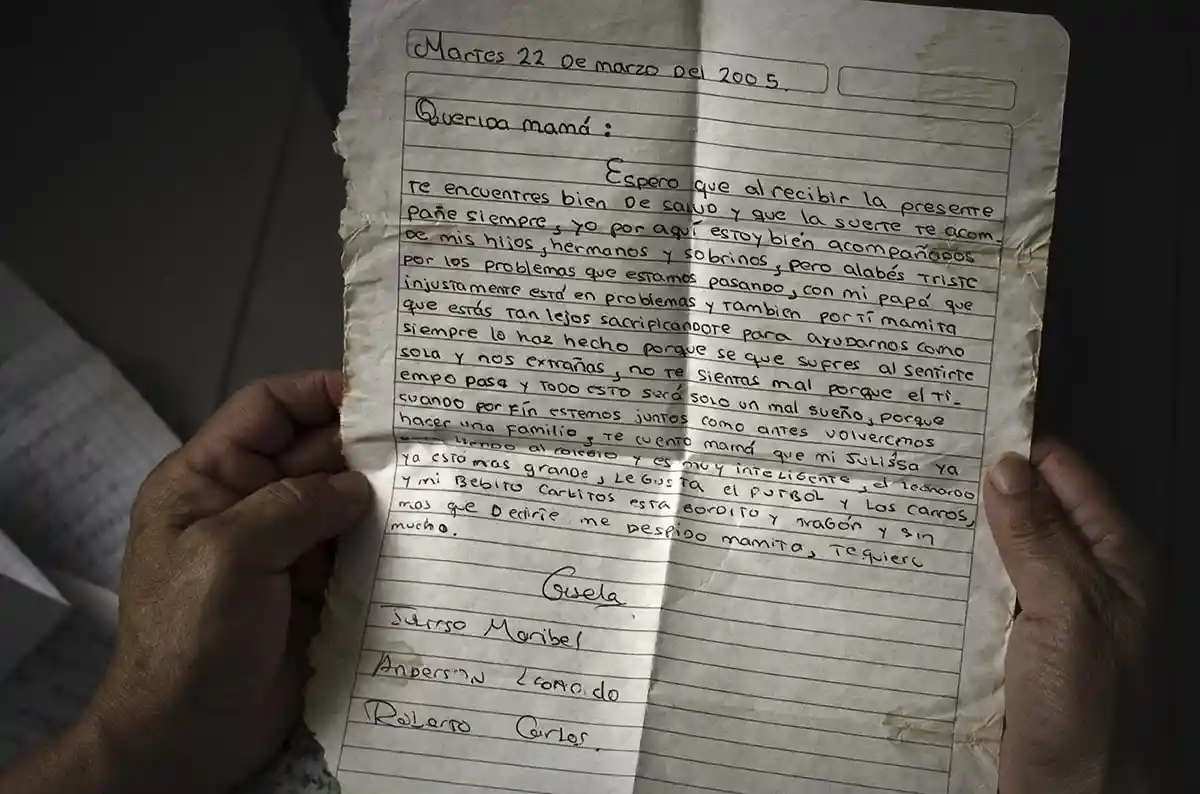 Martes 22 De marzo Del 2005.
Querida mamá:
Espero que al recibir la presente
te encuentres bien De salud y que la suerte te acom-
pañe siempre, yo por aquí estoy bien acompañados
De mis hijos, hermanos y sobrinos, pero alabés triste
por los problemas que estamos pasando, con mi papá que
injustamente está en problemas y tambien por tí mamita
que estás tan lejos sacrificandote para ayudarnos como
siempre lo haz hecho porque se que sufres al sentirte
sola y nos extrañas, no te sientas mal porque el ti-
empo pasa y todo esto será solo un mal sueño, porque
cuando por fín estemos juntos como antes volveremos
hacer una familia, te cuento mamá que mi Julissa ya
yendo al colegio y es muy inteligente, el leonardo
ya esta mas grande, le gusta el futbol y los carros,
y mi Bebito Carlitos esta gordito y tragón y sin
mas que Decirte me Despido mamita, te quiere
mucho.
Guela
Maribel
Anderson Leonardo
Roberto Carlos.